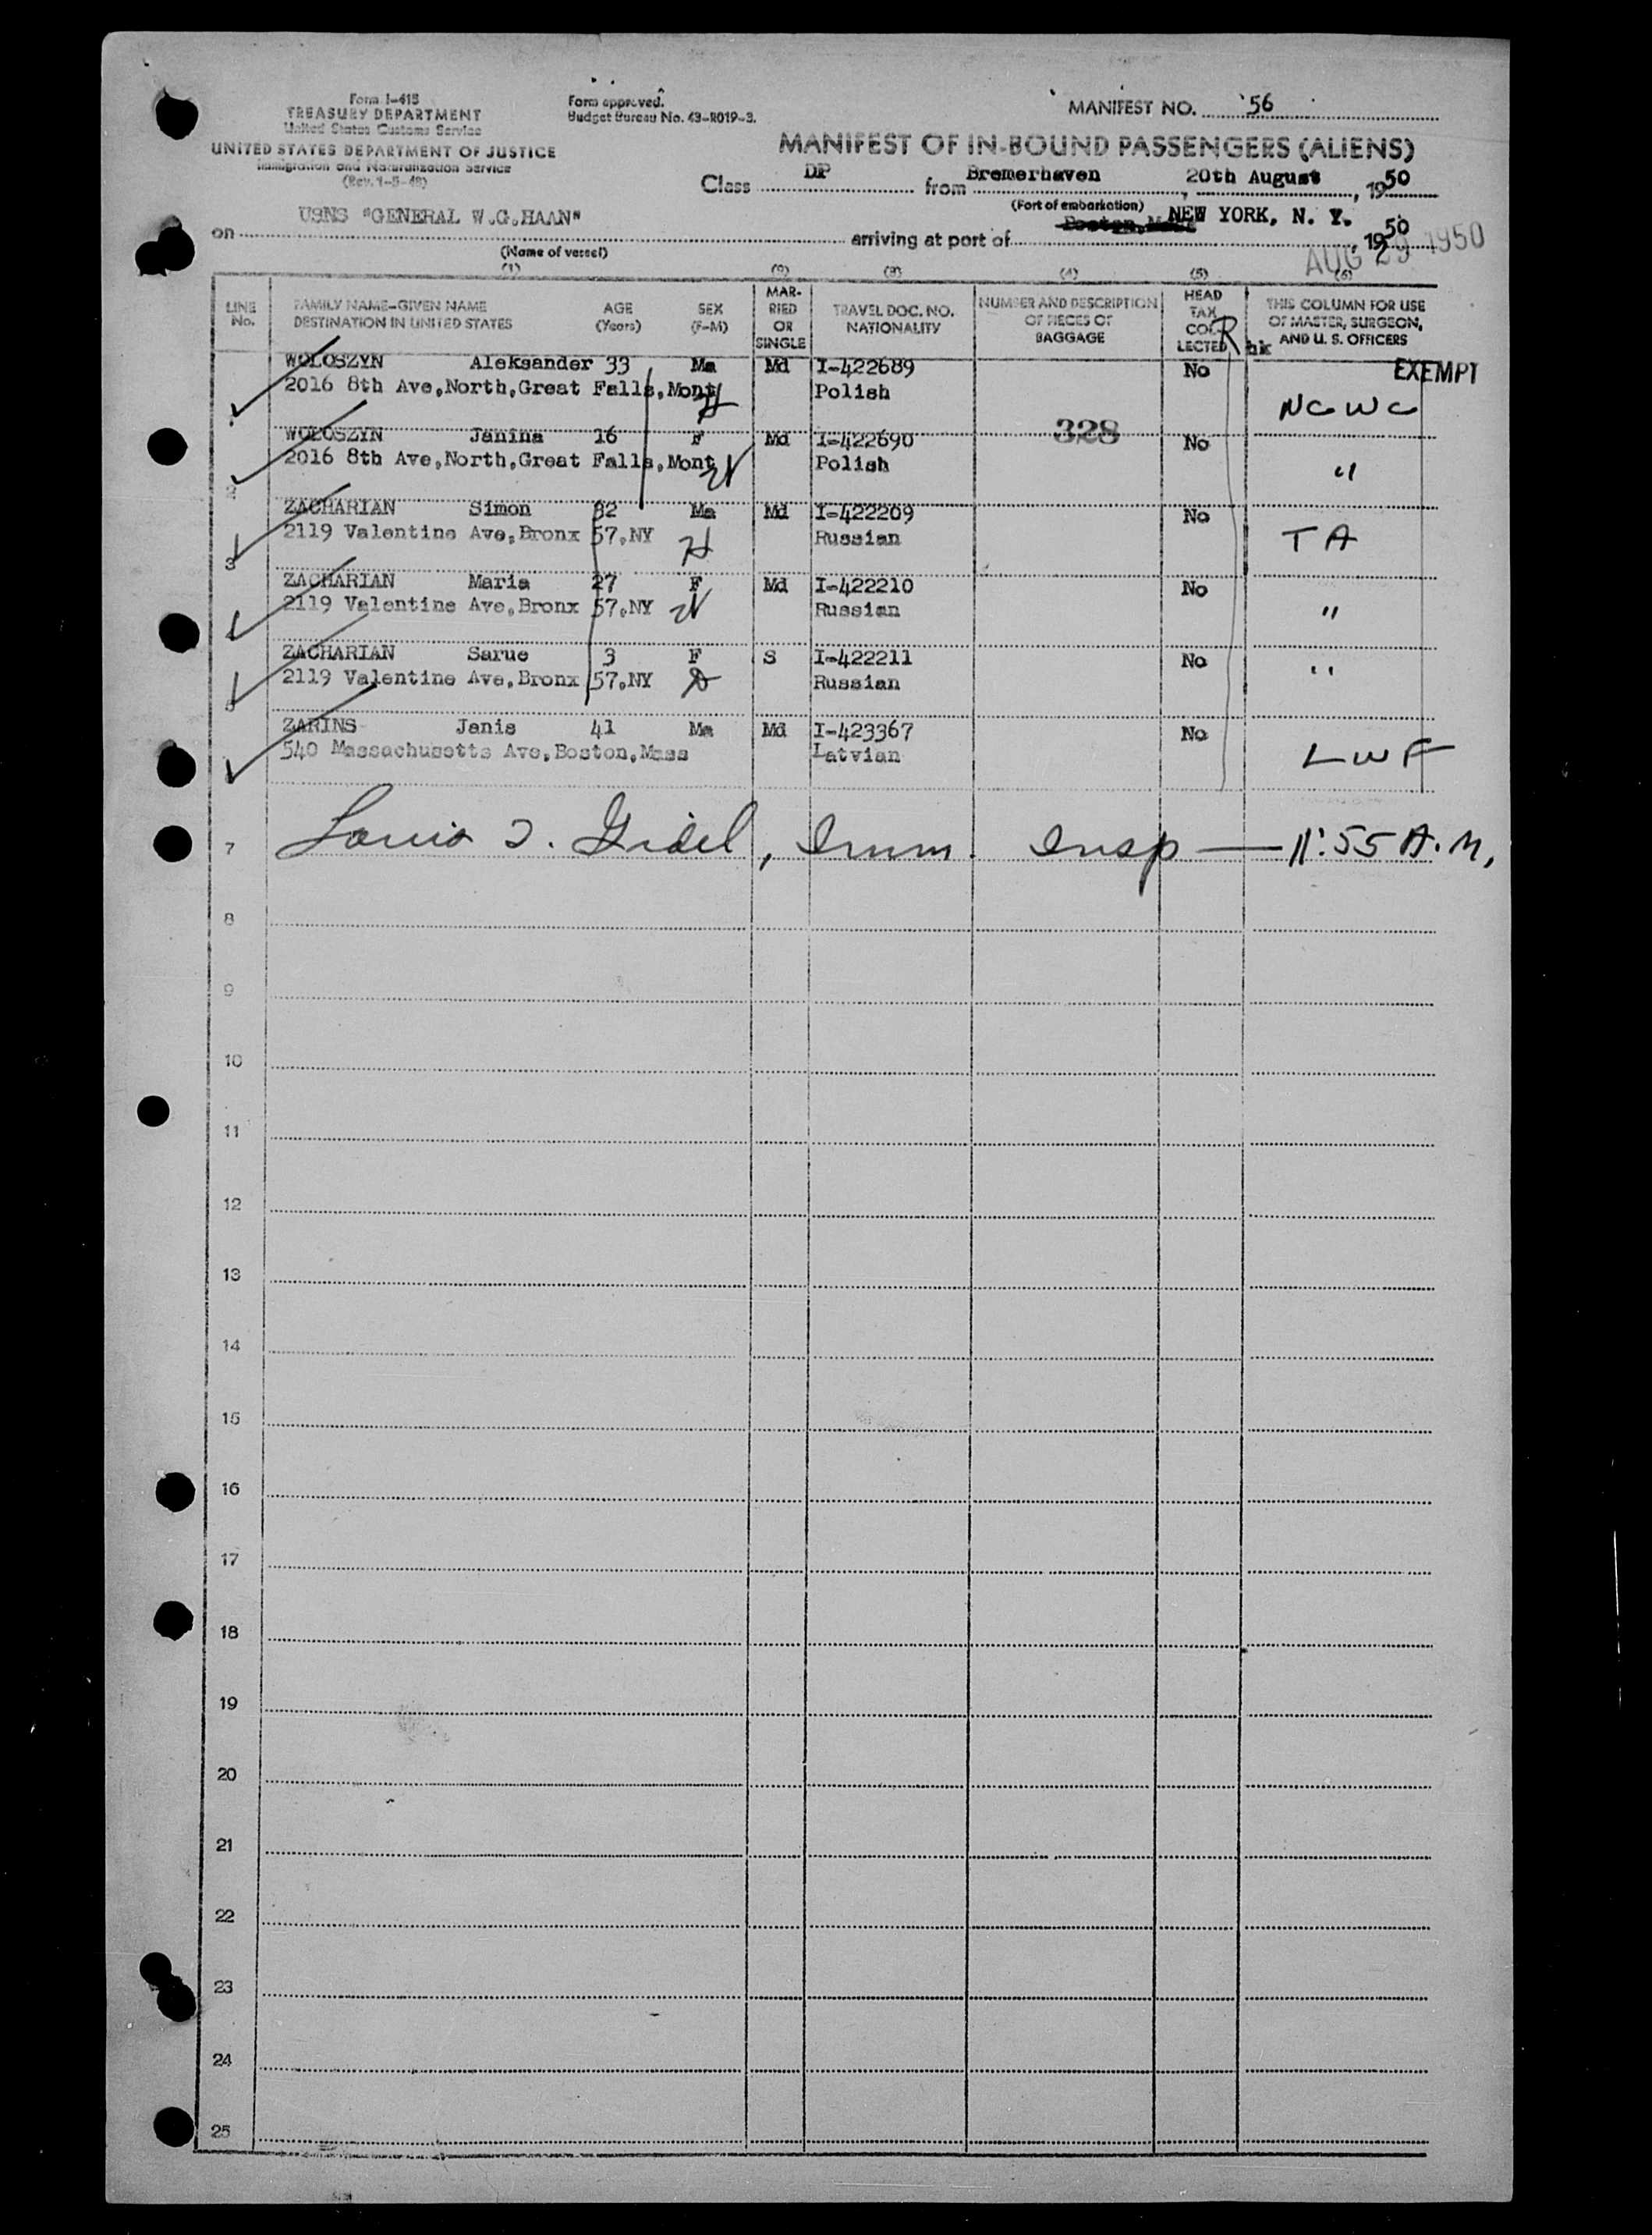 Form I-415
TREASURY DEPARTMENT
United States Customs Service
UNITED STATES DEPARTMENT OF JUSTICE
Immigration and Naturalization Service
(Rev. 1-5-48)
Form approved.
Budget Bureau No. 43-R019-3.
MANIFEST NO. 56
MANIFEST OF IN-BOUND PASSENGERS (ALIENS)
Class DP from Bremerhaven, 20th August, 1950
(Port of embarkation)
on USNS "GENERAL W.G.HAAN" arriving at port of NEW YORK, N. Y., 1950
(Name of vessel)
AUG 29 1950
(1) (2) (3) (4) (5) (6)
LINE No. FAMILY NAME-GIVEN NAME DESTINATION IN UNITED STATES AGE (Years) SEX (F-M) MARRIED OR SINGLE TRAVEL DOC. NO. NATIONALITY NUMBER AND DESCRIPTION OF PIECES OF BAGGAGE HEAD TAX COLLECTED THIS COLUMN FOR USE OF MASTER, SURGEON, AND U. S. OFFICERS
R hk
WOLOSZYN Aleksander 33 Ma Md I-422689 No EXEMPT
2016 8th Ave,North,Great Falls,Mont Polish NCWC
WOLOSZYN Janina 16 F Md I-422690 328 No
2 2016 8th Ave,North,Great Falls,Mont Polish "
ZACHARIAN Simon 32 Ma Md I-422209 No
3 2119 Valentine Ave,Bronx 57,NY Russian TA
ZACHARIAN Maria 27 F Md I-422210 No
2119 Valentine Ave,Bronx 57,NY Russian "
ZACHARIAN Sarue 3 F S I-422211 No
5 2119 Valentine Ave,Bronx 57,NY Russian "
ZARINS Janis 41 Ma Md I-423367 No
540 Massachusetts Ave,Boston,Mass Latvian LWF
7 Louis Gidel, Imm. Insp — 11:55 A.M.
8
9
10
11
12
13
14
15
16
17
18
19
20
21
22
23
24
25